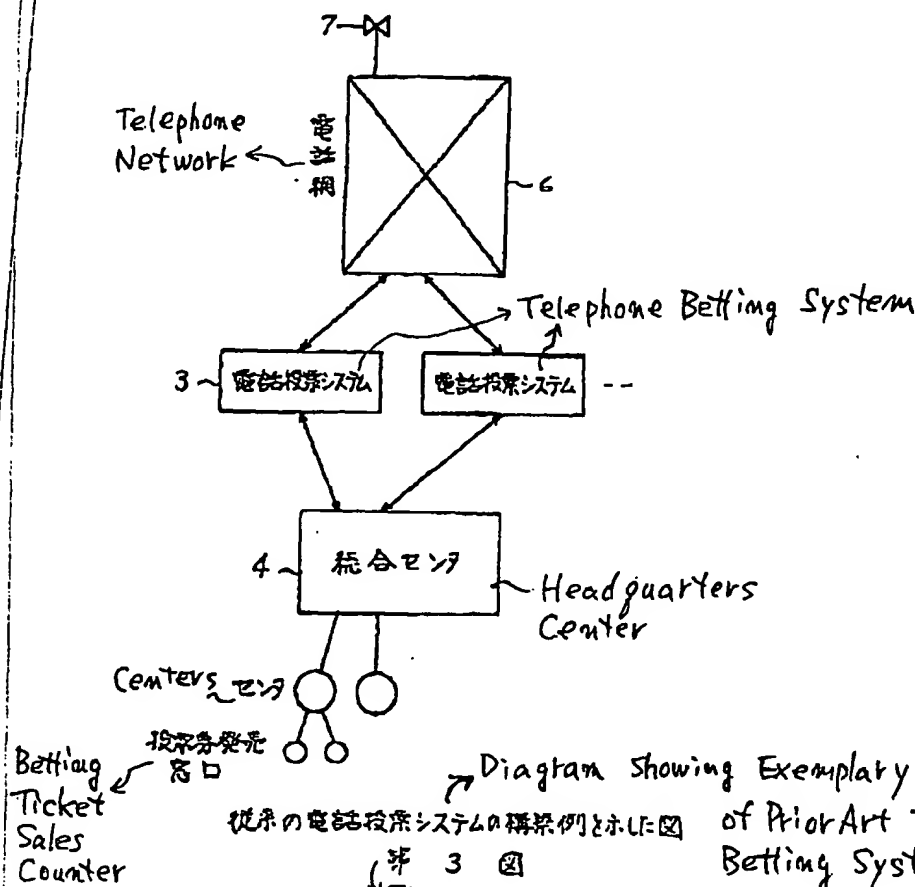 7
Telephone
Network
電話網
6
Telephone Betting System
3
電話投票システム
電話投票システム
--
4
総合センタ
Headquarters
Center
Centers
センタ
Betting
Ticket
Sales
Counter
投票券発売
窓口
Diagram Showing Exemplary
of Prior Art
Betting Syst
従来の電話投票システムの構築例を示した図
第 3 図